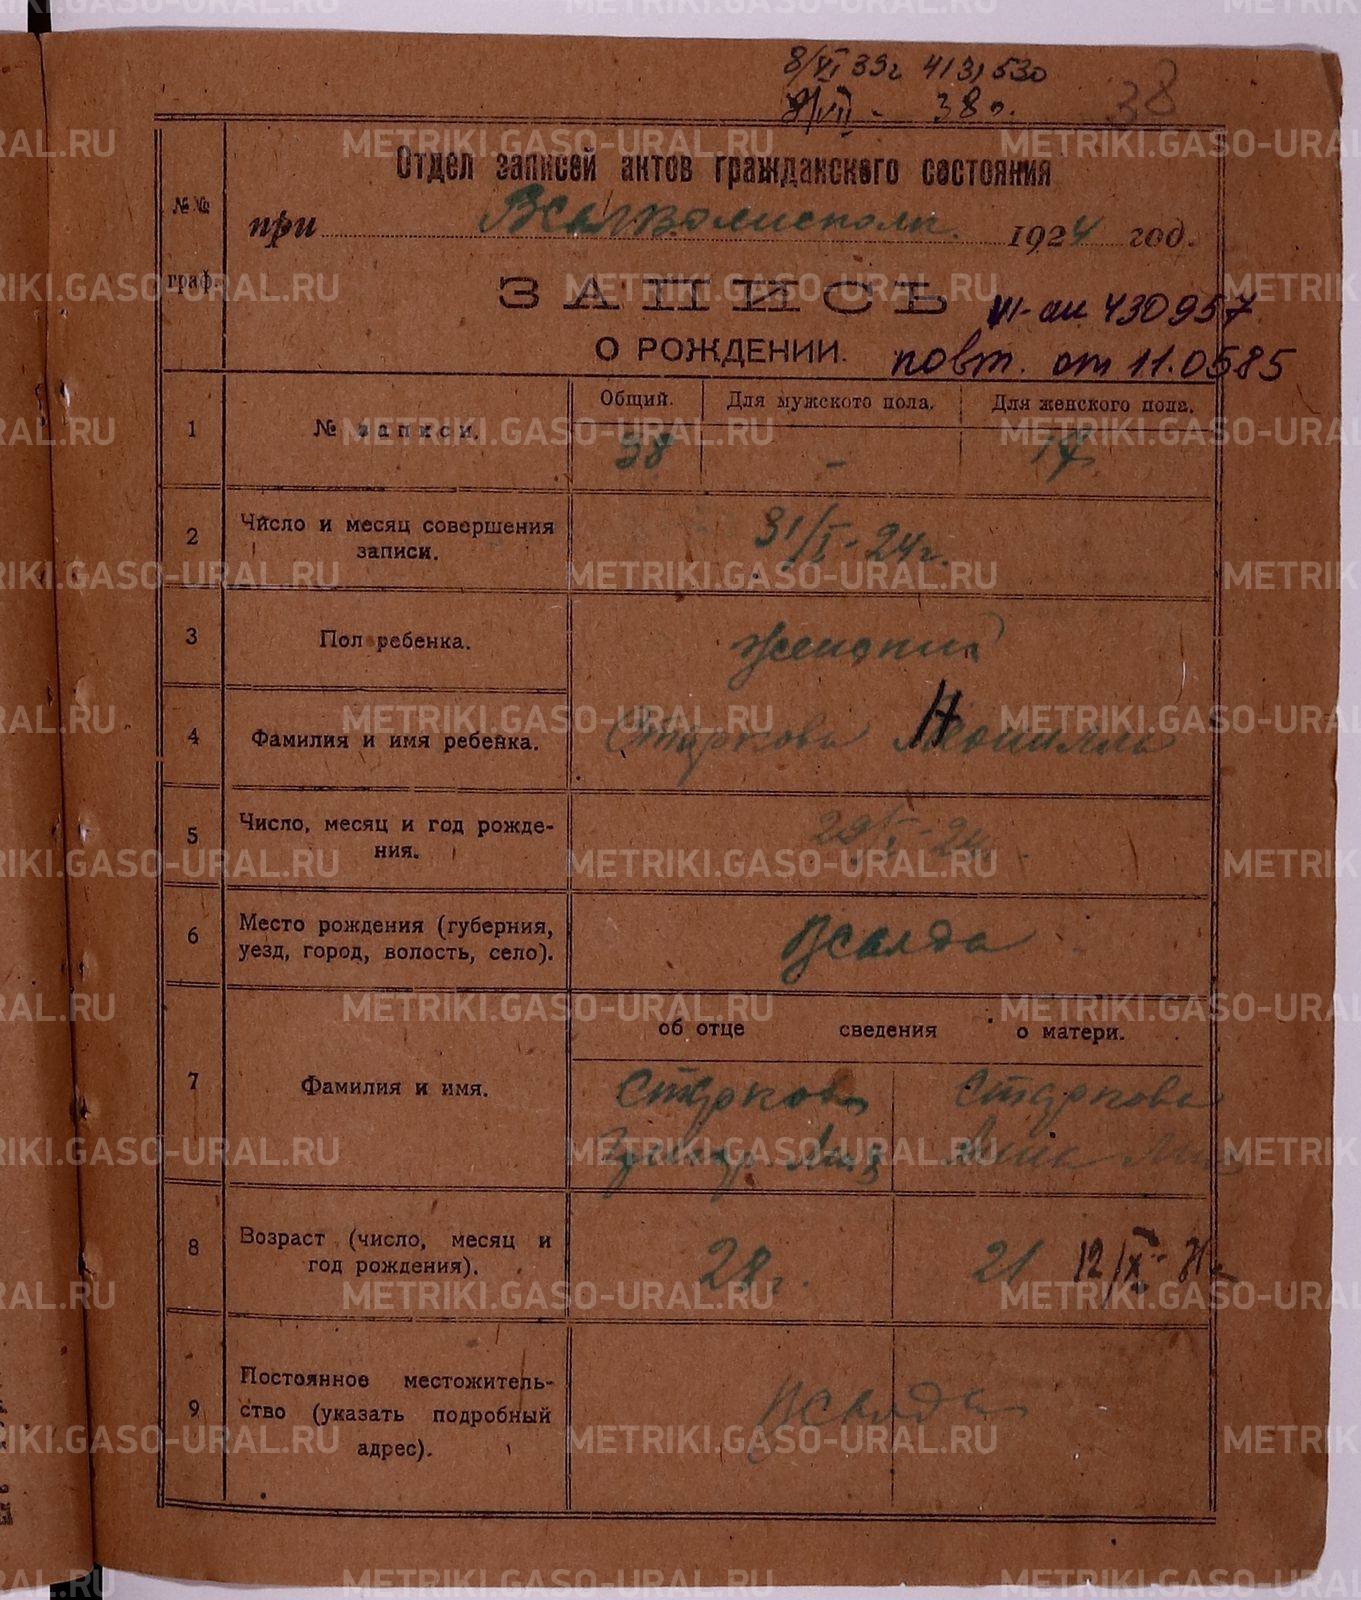 8/VI 39г 413,530
8/VII - 38г.
38
Отдел записей актов гражданского состояния
№№ граф.
при 1924 год.
ЗАПИСЬ
VI-аи 430957
О РОЖДЕНИИ.
повт. от 11.0585
1 № записи. Общий. Для мужского пола. Для женского пола.
38 - 17.
2 Число и месяц совершения
записи.
31/I-24г.
3 Пол ребенка. женский
4 Фамилия и имя ребенка. Старкова Неонилла
5 Число, месяц и год рожде-
ния.
29/I-24.
6 Место рождения (губерния,
уезд, город, волость, село).
Исалда
об отце сведения о матери.
7 Фамилия и имя.
Старков Старкова
Анна
8 Возраст (число, месяц и
год рождения).
28г. 21 12/IX
9 Постоянное местожитель-
ство (указать подробный
адрес).
Исалда
METRIKI.GASO-URAL.RU